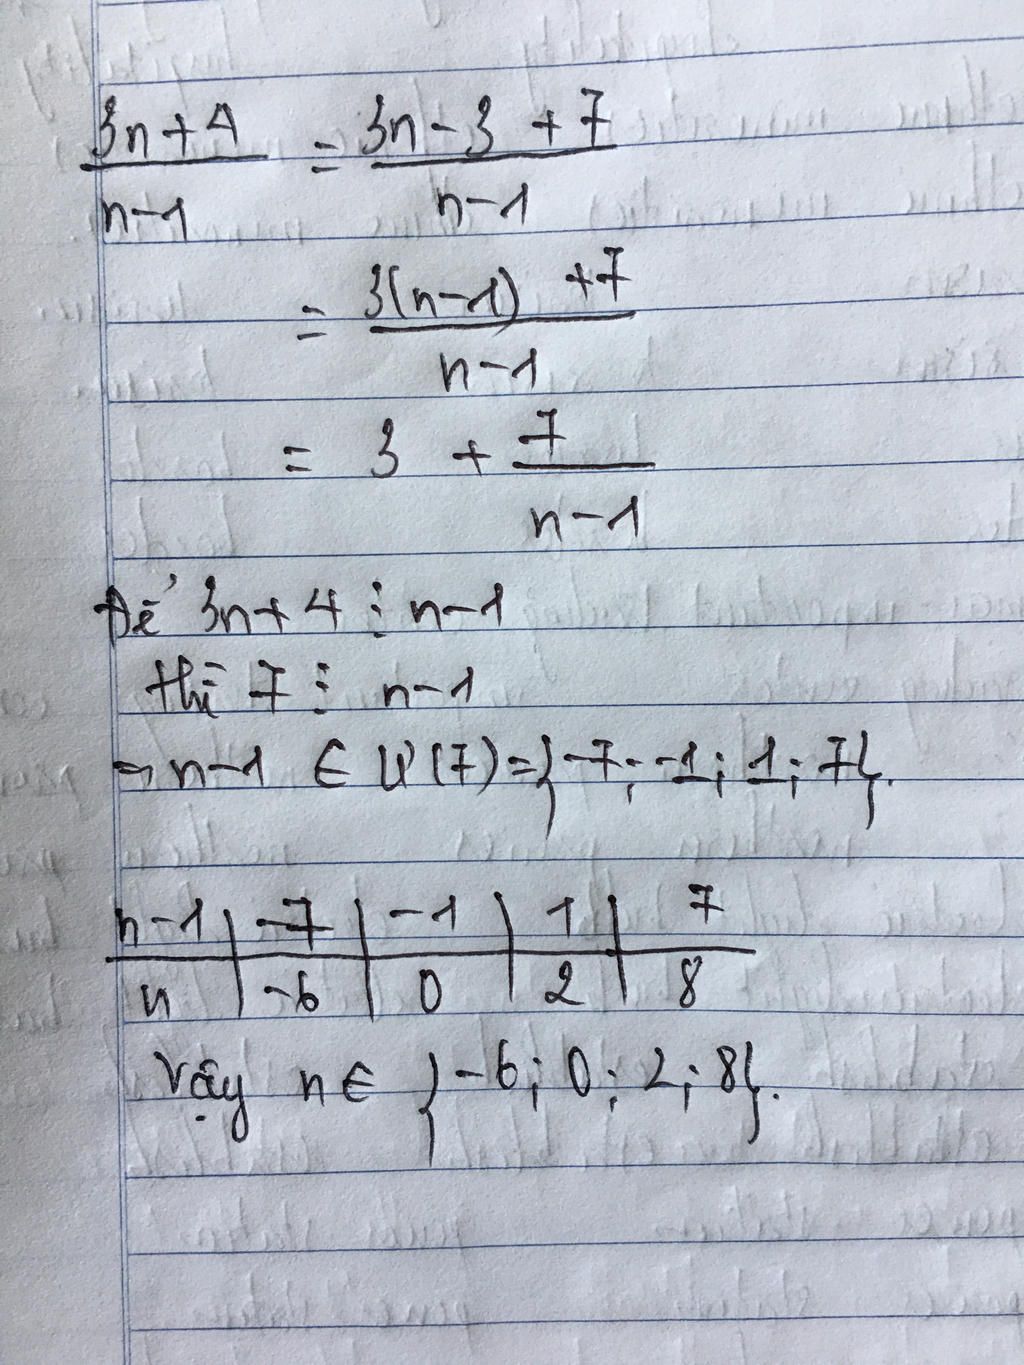 3n+4 / n-1 = 3n-3+7 / n-1
= 3(n-1)+7 / n-1
= 3 + 7 / n-1
Để 3n+4 ⋮ n-1
thì 7 ⋮ n-1
→ n-1 ∈ Ư(7)={-7;-1;1;7}.
n-1 | -7 | -1 | 1 | 7
n | -6 | 0 | 2 | 8
Vậy n ∈ {-6;0;2;8}.